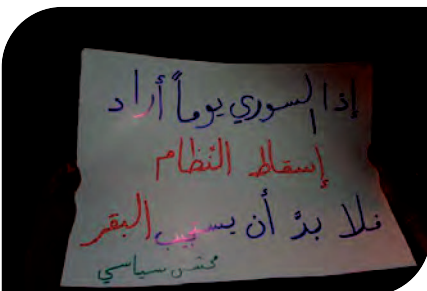 إذا السوري يوماً أراد
إسقاط النظام
فلا بدّ أن يسيب البقر
محشش سياسي